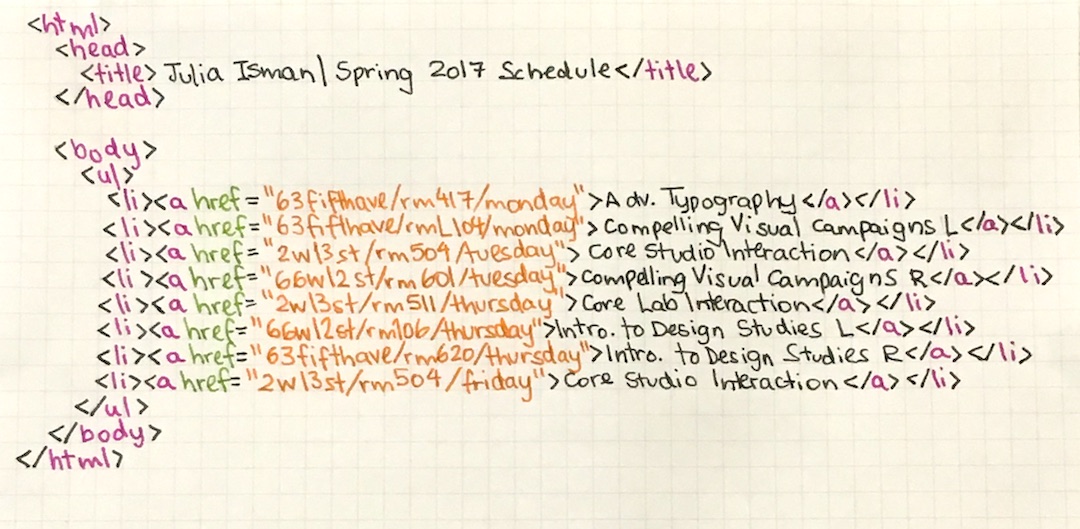 <html>
<head>
<title> Julia Isman | Spring 2017 Schedule</title>
</head>
<body>
<ul>
<li><a href="63fifthave/rm417/monday">Adv. Typography</a></li>
<li><a href="63fifthave/rmL104/monday">Compelling Visual Campaigns L</a></li>
<li><a href="2w13st/rm504/tuesday">Core Studio Interaction</a></li>
<li><a href="66w12st/rm601/tuesday">Compelling Visual Campaigns R</a></li>
<li><a href="2w13st/rm511/thursday">Core Lab Interaction</a></li>
<li><a href="66w12st/rm106/thursday">Intro. to Design Studies L</a></li>
<li><a href="63fifthave/rm620/thursday">Intro. to Design Studies R</a></li>
<li><a href="2w13st/rm504/friday">Core Studio Interaction</a></li>
</ul>
</body>
</html>